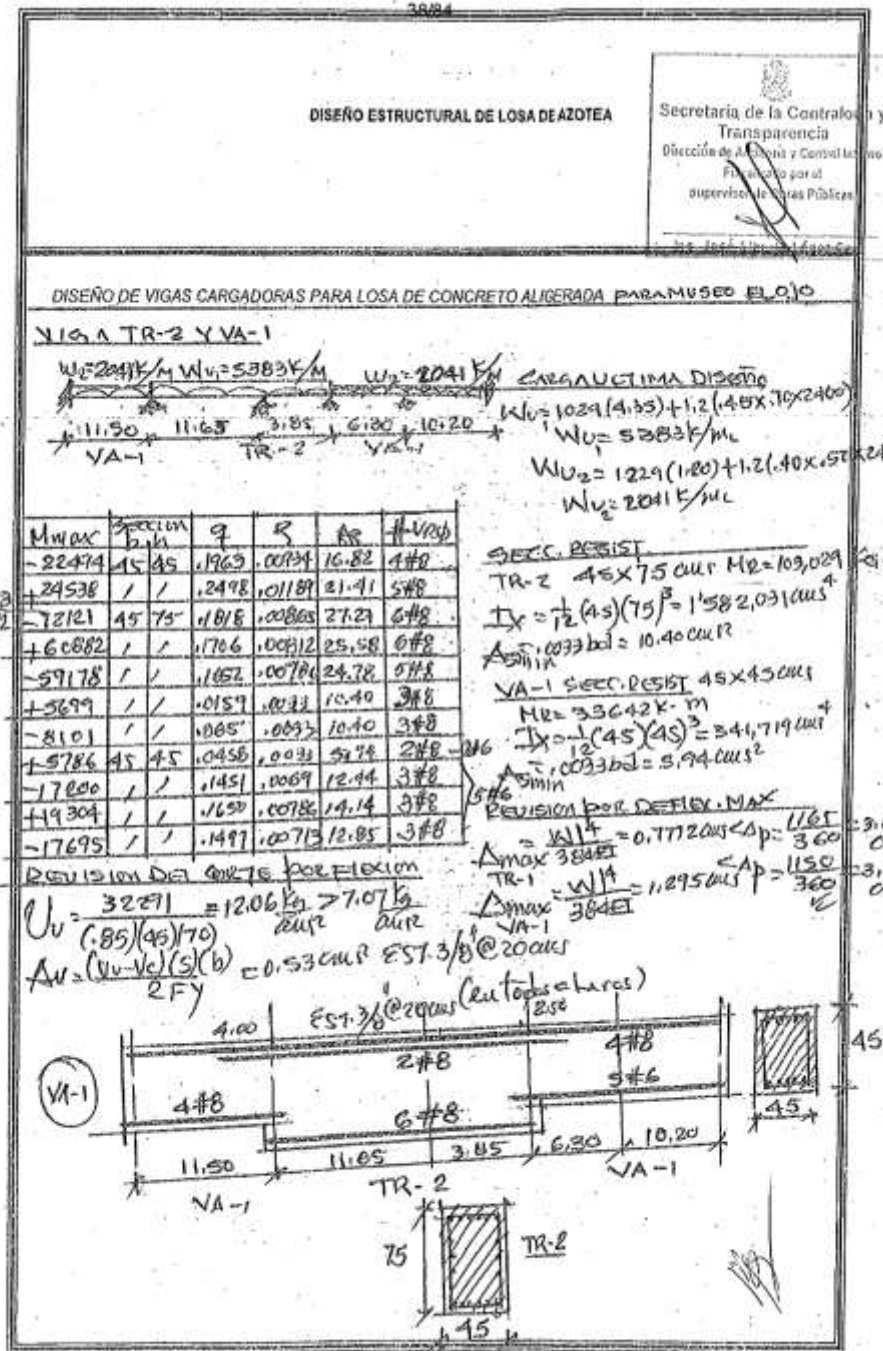 38/84
DISEÑO ESTRUCTURAL DE LOSA DE AZOTEA
Secretaría de la Contraloría y
Transparencia
Dirección de Auditoría y Control Interno
por el
supervisor de Obras Públicas
DISEÑO DE VIGAS CARGADORAS PARA LOSA DE CONCRETO ALIGERADA PARA MUSEO EL OJO
VIGA TR-2 Y VA-1
W2=2041K/M WU1=5383K/M WU2=2041K/M
11.50 11.65 3.85 6.30 10.20
VA-1 TR-2
CARGA ULTIMA DISEÑO
WU1=1029(4.35)+1.2(.45X.70X2400)
WU1=5383K/ML
WU2=1229(1.20)+1.2(.40X.57X24
WU2=2041K/ML
Mmax SECCION b h q As #VRS
-22494 45 45 .1963 .00934 16.82 4#8
+24538 / / .2498 .01189 21.41 5#8
-72121 45 75 .1818 .00865 27.27 6#8
+60882 / / .1706 .00812 25.58 6#8
-59178 / / 24.78 5#8
+5699 / / .0159 .0033 10.40 3#8
-8101 / / .0033 10.40 3#8
+5786 45 45 .0458 .0033 5.94 2#8 - 2#6
-17200 / / .1451 .0069 12.44 3#8
+19304 / / .1650 .00786 14.14 3#8
-17695 / / .1497 .00713 12.85 3#8
5#6
SECC. RESIST.
TR-2 45X75 cms MR=103,029
IX=1/12(45)(75)³=1'582,031cms⁴
Asmin=.0033bd=10.40cm²
VA-1 SECC. RESIST 45X45cms
MR=33642K-m
IX=1/12(45)(45)³=341,719cms⁴
Asmin=.0033bd=5.94cms²
REVISION POR DEFLEX. MAX
Δmax TR-1=Wl⁴/384EI=0.7772cms<Δp=1165/360=3.
Δmax VA-1=Wl⁴/384EI=1.295cms<Δp=1150/360=3.
REVISION DEL CORTE POR FLEXION
Uv=32291/(.85)(45)(70)=12.06kg/cm²>7.07kg/cm²
Av=(Vu-Vc)(S)(b)/2FY=0.53cm² EST.3/8"@20cms
EST.3/8"@20cms (en todos claros)
4.00 2.50
2#8 4#8
VA-1
4#8 6#8 5#6
11.50 11.65 3.85 6.30 10.20
VA-1 TR-2 VA-1
45
45
75 TR-2
45